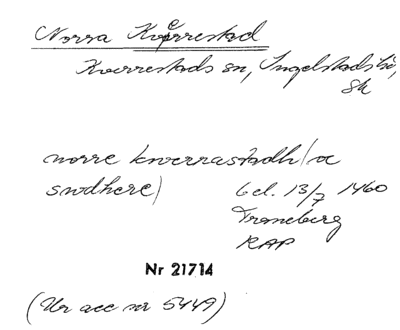 Norra Kverrestad
Kverrestads sn, Ingelstads hd,
Sk
norre kwerrastadh (oc
swdhere) 6 el. 13/7 1460
Traneberg
RAP
Nr 21714
(Ur acc nr 5449)